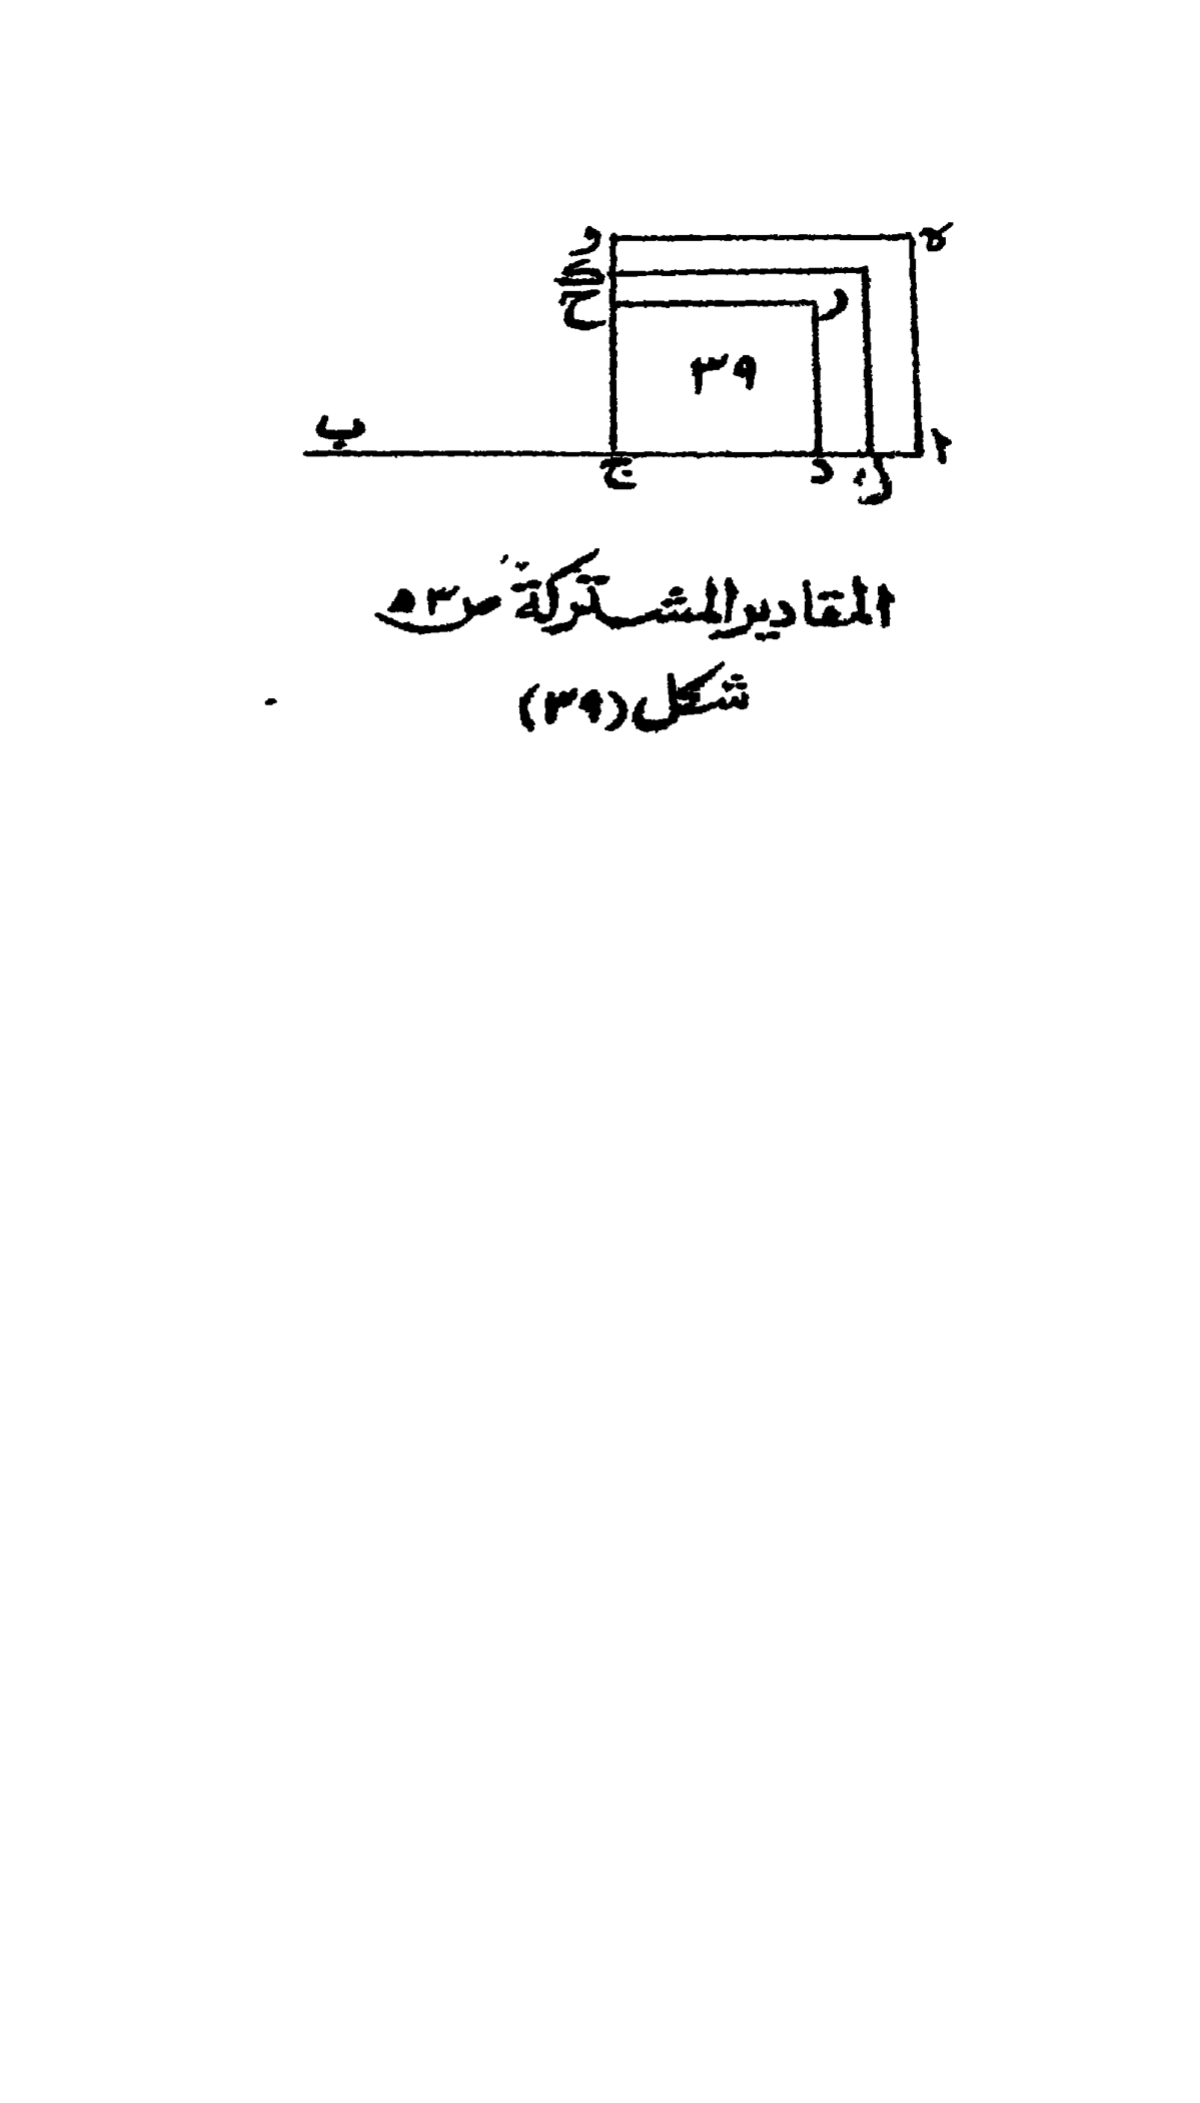 و ه
ك
ح ر
٣٩
ب ا
ج د ن
المقادير المشتركة ص ٥٣
شكل (٣٩)